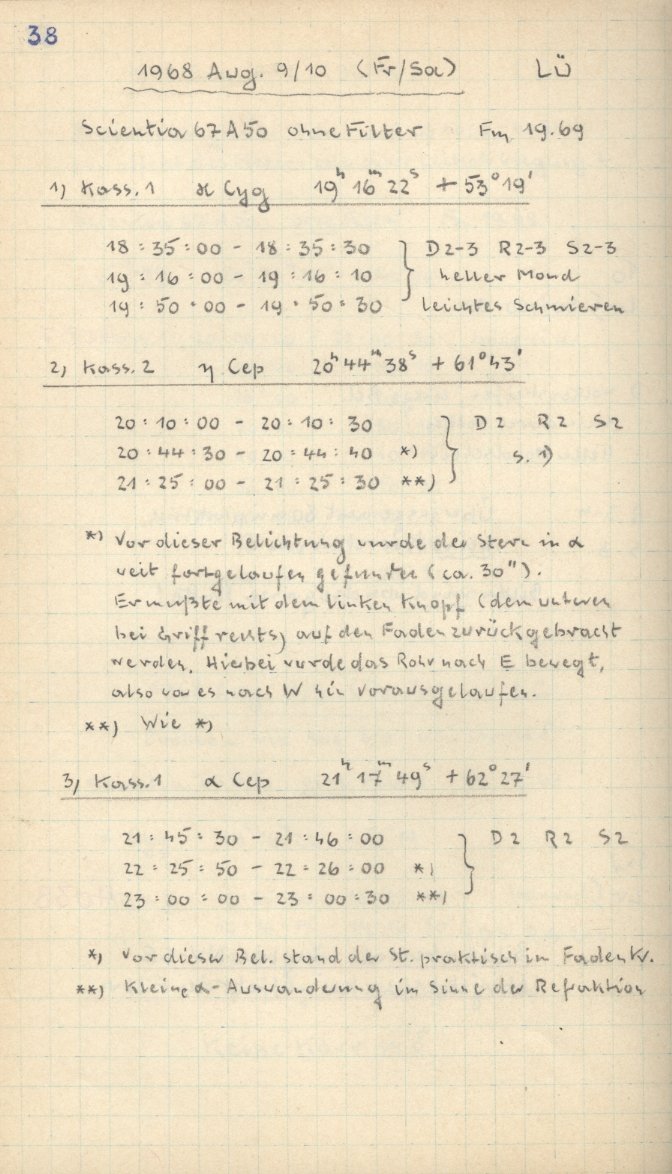 38
1968 Aug. 9/10 (Fr/Sa) LÜ
Scientia 67A50 ohne Filter Fm 19.69
1) Kass. 1 ϰ Cyg 19ʰ 16ᵐ 22ˢ + 53° 19'
18 : 35 : 00 - 18 : 35 : 30 } D2-3 R2-3 S2-3
19 : 16 : 00 - 19 : 16 : 10 heller Mond
19 : 50 : 00 - 19 : 50 : 30 leichtes Schmieren
2) Kass. 2 η Cep 20ʰ 44ᵐ 38ˢ + 61° 43'
20 : 10 : 00 - 20 : 10 : 30 } D2 R2 S2
20 : 44 : 30 - 20 : 44 : 40 *) s. 1)
21 : 25 : 00 - 21 : 25 : 30 **)
*) Vor dieser Belichtung wurde der Stern in α
weit fortgelaufen gefunden (ca. 30").
Er mußte mit dem linken Knopf (dem unteren
bei Griff rechts) auf den Faden zurückgebracht
werden. Hiebei wurde das Rohr nach E bewegt,
also war es nach W hin vorausgelaufen.
**) Wie *)
3) Kass. 1 α Cep 21ʰ 17ᵐ 49ˢ + 62° 27'
21 : 45 : 30 - 21 : 46 : 00 } D2 R2 S2
22 : 25 : 50 - 22 : 26 : 00 *)
23 : 00 : 00 - 23 : 00 : 30 **)
*) Vor dieser Bel. stand der St. praktisch im Fadenkr.
**) Kleine α-Auswanderung im Sinne der Refraktion